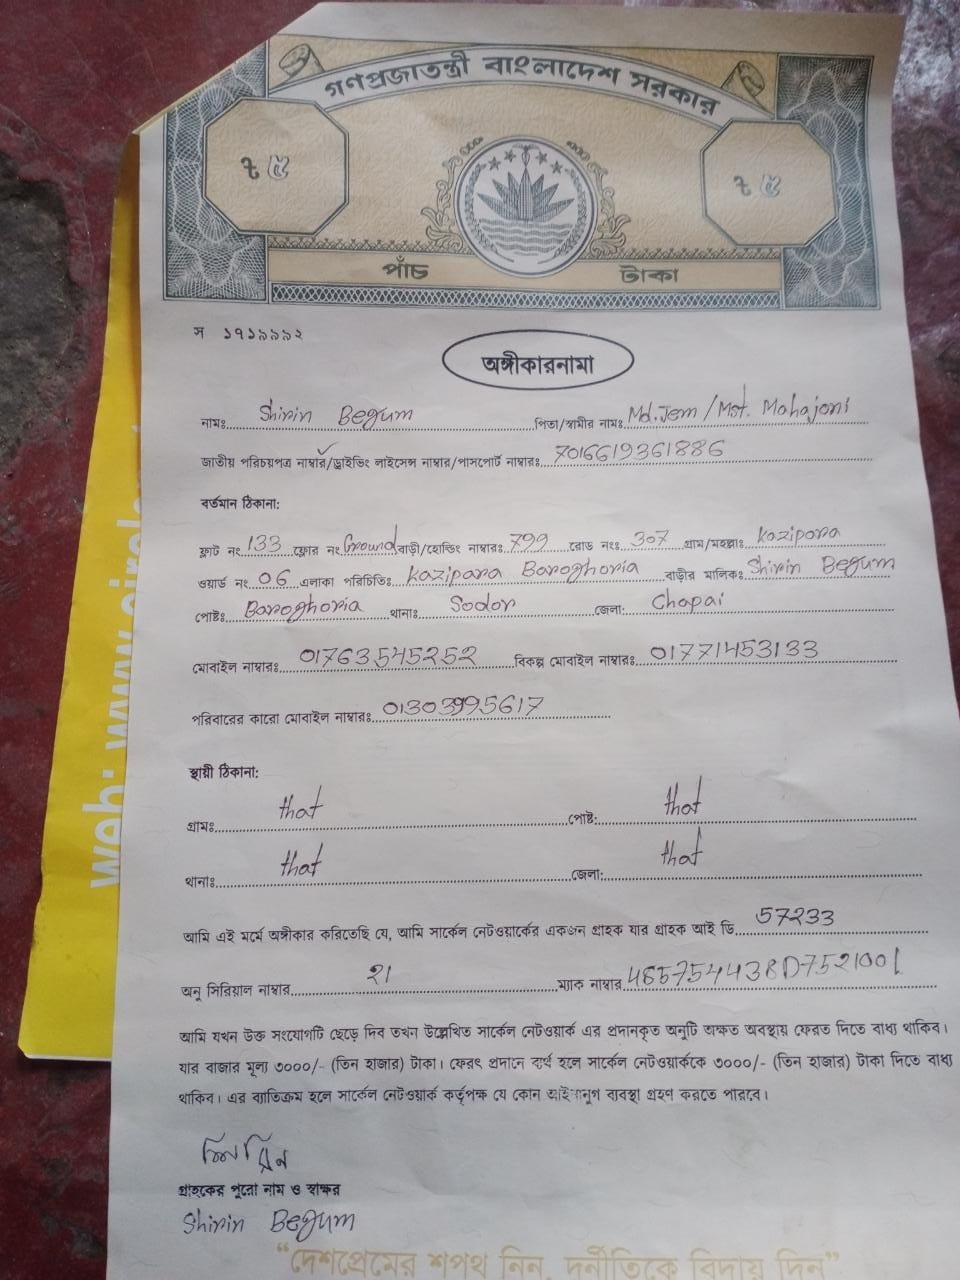 গণপ্রজাতন্ত্রী বাংলাদেশ সরকার
৳ ৫ ৳ ৫
পাঁচ টাকা
স ১৭১৯৯৯২
অঙ্গীকারনামা
নামঃ Shirin Begum পিতা/স্বামীর নামঃ Md. Jem / Mst. Mahajoni
জাতীয় পরিচয়পত্র নাম্বার/ড্রাইভিং লাইসেন্স নাম্বার/পাসপোর্ট নাম্বারঃ 7016619361886
বর্তমান ঠিকানা:
ফ্লাট নং 133 ফ্লোর নং Ground বাড়ী/হোল্ডিং নাম্বারঃ 799 রোড নংঃ 307 গ্রাম/মহল্লাঃ Kazipara
ওয়ার্ড নং 06 এলাকা পরিচিতিঃ Kazipara Baroghoria বাড়ীর মালিকঃ Shirin Begum
পোষ্টঃ Baroghoria থানাঃ Sodor জেলা: Chapai
মোবাইল নাম্বারঃ 01763545252 বিকল্প মোবাইল নাম্বারঃ 01771453133
পরিবারের কারো মোবাইল নাম্বারঃ 01303995617
স্থায়ী ঠিকানা:
গ্রামঃ that পোষ্ট: that
থানাঃ that জেলা: that
আমি এই মর্মে অঙ্গীকার করিতেছি যে, আমি সার্কেল নেটওয়ার্কের একজন গ্রাহক যার গ্রাহক আই ডি 57233
অনু সিরিয়াল নাম্বার 21 ম্যাক নাম্বার
আমি যখন উক্ত সংযোগটি ছেড়ে দিব তখন উল্লেখিত সার্কেল নেটওয়ার্ক এর প্রদানকৃত অনুটি অক্ষত অবস্থায় ফেরত দিতে বাধ্য থাকিব।
যার বাজার মূল্য ৩০০০/- (তিন হাজার) টাকা। ফেরৎ প্রদানে ব্যর্থ হলে সার্কেল নেটওয়ার্ককে ৩০০০/- (তিন হাজার) টাকা দিতে বাধ্য
থাকিব। এর ব্যতিক্রম হলে সার্কেল নেটওয়ার্ক কর্তৃপক্ষ যে কোন আইনানুগ ব্যবস্থা গ্রহণ করতে পারবে।
গ্রাহকের পুরো নাম ও স্বাক্ষর
Shirin Begum
“দেশপ্রেমের শপথ নিন, দুর্নীতিকে বিদায় দিন”